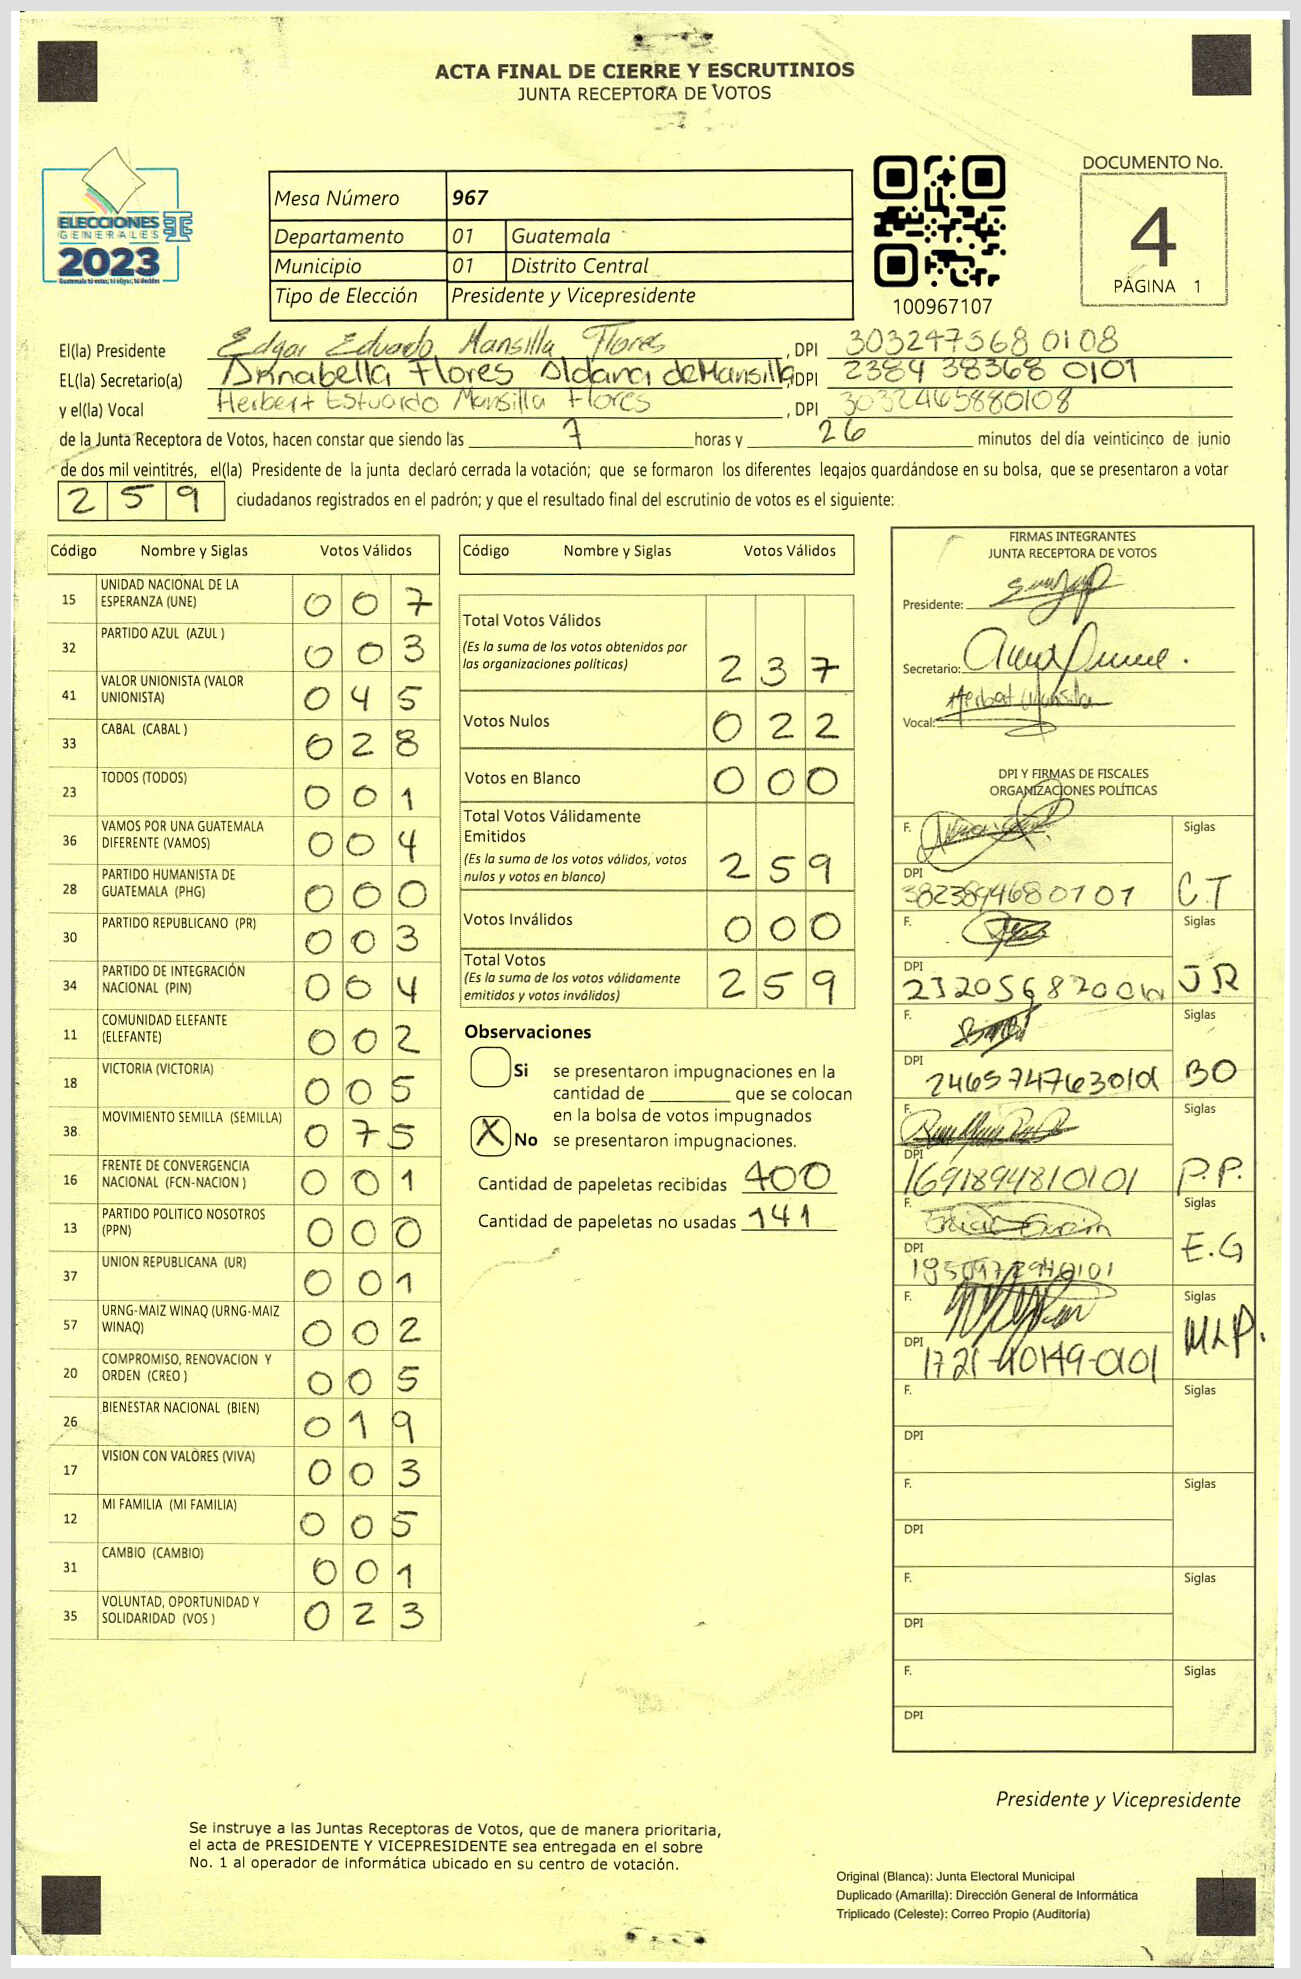 ACTA FINAL DE CIERRE Y ESCRUTINIOS
JUNTA RECEPTORA DE VOTOS
ELECCIONES
GENERALES
2023
Guatemala tú votas, tú eliges, tú decides
Mesa Número 967
Departamento 01 Guatemala
Municipio 01 Distrito Central
Tipo de Elección Presidente y Vicepresidente
100967107
DOCUMENTO No.
4
PÁGINA 1
El(la) Presidente Edgar Eduardo Mansilla Flores , DPI 303247568 0108
EL(la) Secretario(a) Annabella Flores Aldana de Mansilla , DPI 2384 38368 0101
y el(la) Vocal Herbert Estuardo Mansilla Flores , DPI 3032465880108
de la Junta Receptora de Votos, hacen constar que siendo las 7 horas y 26 minutos del día veinticinco de junio
de dos mil veintitrés, el(la) Presidente de la junta declaró cerrada la votación; que se formaron los diferentes legajos guardándose en su bolsa, que se presentaron a votar
2 5 9 ciudadanos registrados en el padrón; y que el resultado final del escrutinio de votos es el siguiente:
Código Nombre y Siglas Votos Válidos
15 UNIDAD NACIONAL DE LA ESPERANZA (UNE) 0 0 7
32 PARTIDO AZUL (AZUL ) 0 0 3
41 VALOR UNIONISTA (VALOR UNIONISTA) 0 4 5
33 CABAL (CABAL ) 0 2 8
23 TODOS (TODOS) 0 0 1
36 VAMOS POR UNA GUATEMALA DIFERENTE (VAMOS) 0 0 4
28 PARTIDO HUMANISTA DE GUATEMALA (PHG) 0 0 0
30 PARTIDO REPUBLICANO (PR) 0 0 3
34 PARTIDO DE INTEGRACIÓN NACIONAL (PIN) 0 0 4
11 COMUNIDAD ELEFANTE (ELEFANTE) 0 0 2
18 VICTORIA (VICTORIA) 0 0 5
38 MOVIMIENTO SEMILLA (SEMILLA) 0 7 5
16 FRENTE DE CONVERGENCIA NACIONAL (FCN-NACION ) 0 0 1
13 PARTIDO POLITICO NOSOTROS (PPN) 0 0 0
37 UNION REPUBLICANA (UR) 0 0 1
57 URNG-MAIZ WINAQ (URNG-MAIZ WINAQ) 0 0 2
20 COMPROMISO, RENOVACION Y ORDEN (CREO ) 0 0 5
26 BIENESTAR NACIONAL (BIEN) 0 1 9
17 VISION CON VALORES (VIVA) 0 0 3
12 MI FAMILIA (MI FAMILIA) 0 0 5
31 CAMBIO (CAMBIO) 0 0 1
35 VOLUNTAD, OPORTUNIDAD Y SOLIDARIDAD (VOS ) 0 2 3
Código Nombre y Siglas Votos Válidos
Total Votos Válidos
(Es la suma de los votos obtenidos por
las organizaciones políticas) 2 3 7
Votos Nulos 0 2 2
Votos en Blanco 0 0 0
Total Votos Válidamente
Emitidos
(Es la suma de los votos válidos, votos
nulos y votos en blanco) 2 5 9
Votos Inválidos 0 0 0
Total Votos
(Es la suma de los votos válidamente
emitidos y votos inválidos) 2 5 9
Observaciones
Si se presentaron impugnaciones en la
cantidad de ________ que se colocan
en la bolsa de votos impugnados
X No se presentaron impugnaciones.
Cantidad de papeletas recibidas 400
Cantidad de papeletas no usadas 141
FIRMAS INTEGRANTES
JUNTA RECEPTORA DE VOTOS
Presidente:
Secretario:
Vocal: Herbert Mansilla
DPI Y FIRMAS DE FISCALES
ORGANIZACIONES POLÍTICAS
F. Siglas
DPI 382389468 0101 C.T
F. Siglas
DPI JR
F. Siglas
DPI BO
F. Siglas
DPI 1691894810101 P.P.
F. Siglas
DPI E.G
F. Siglas
DPI 1721-40149-0101 MLP.
F. Siglas
DPI
F. Siglas
DPI
F. Siglas
DPI
F. Siglas
DPI
Presidente y Vicepresidente
Se instruye a las Juntas Receptoras de Votos, que de manera prioritaria,
el acta de PRESIDENTE Y VICEPRESIDENTE sea entregada en el sobre
No. 1 al operador de informática ubicado en su centro de votación.
Original (Blanca): Junta Electoral Municipal
Duplicado (Amarilla): Dirección General de Informática
Triplicado (Celeste): Correo Propio (Auditoría)